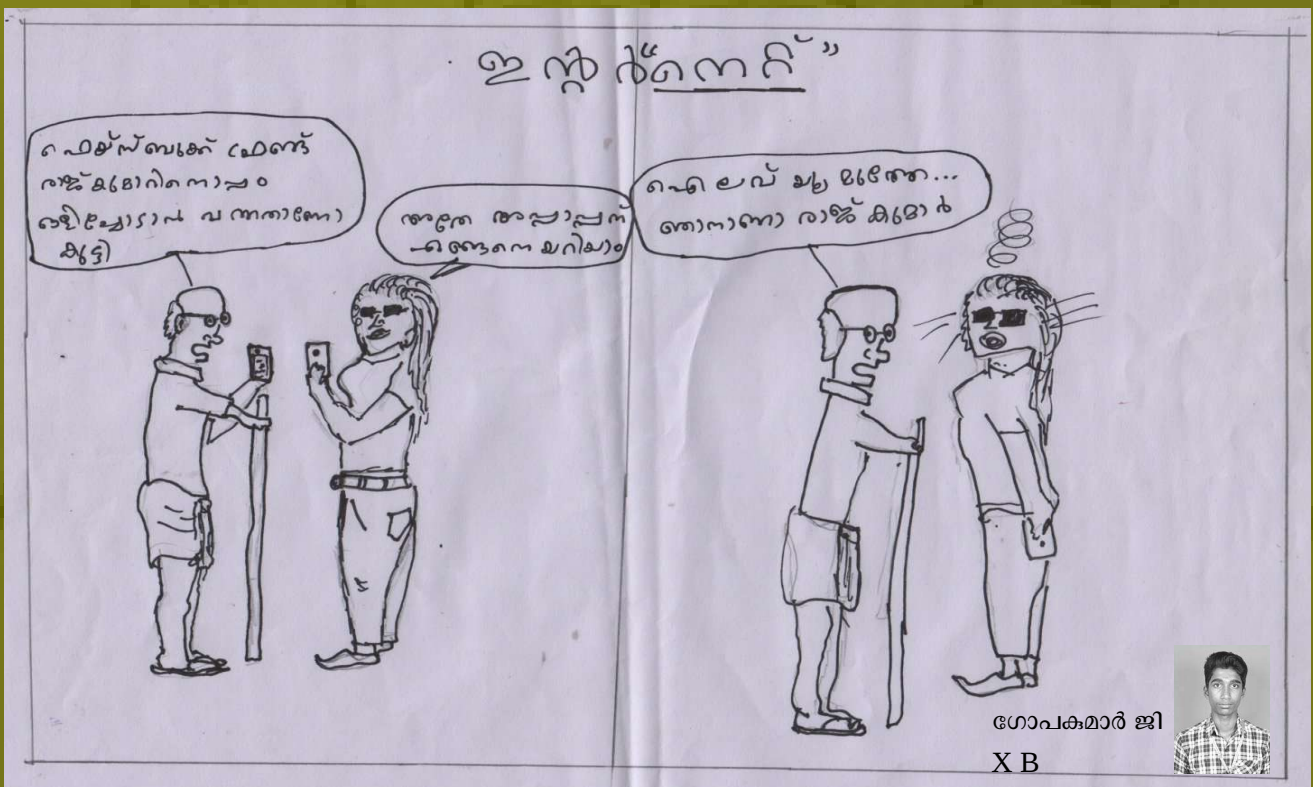 ഇന്റർ“നെറ്റ്”
ഫെയ്സ്ബുക്ക് ഫ്രണ്ട്
രാജ്കുമാറിനൊപ്പം
ഒളിച്ചോടാൻ വന്നതാണോ
കുട്ടി
അതേ അപ്പാപ്പന്
എങ്ങനെയറിയാം
ഐ ലവ് യൂ മുത്തേ...
ഞാനാണാ രാജ് കുമാർ
ഗോപകുമാർ ജി
X B